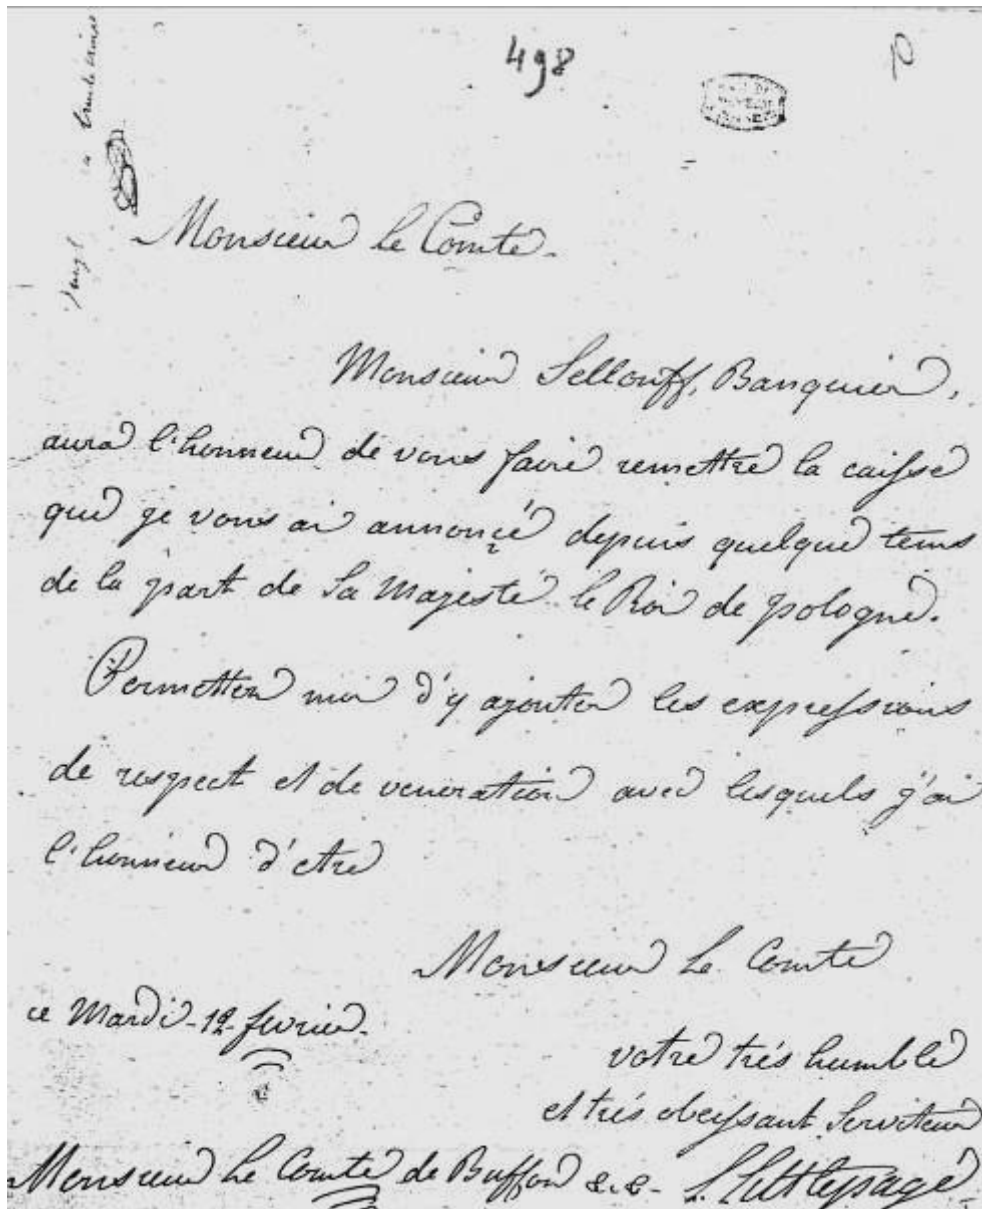 498
Monsieur le Comte.
Monsieur Sellonff, Banquier,
aura l'honneur de vous faire remettre la caisse
que je vous ai annonçé depuis quelque tems
de la part de Sa Majesté le Roi de pologne.
Permetten moi d'y ajouter les expressions
de respect et de veneration avec lesquels j'ai
l'honneur d'etre
Monsieur Le Comte
ce Mardi-12-fevrier.
votre trés humble
et trés obeissant Serviteur
Monsieur Le Comte de Buffon &.&. L. Littlepage